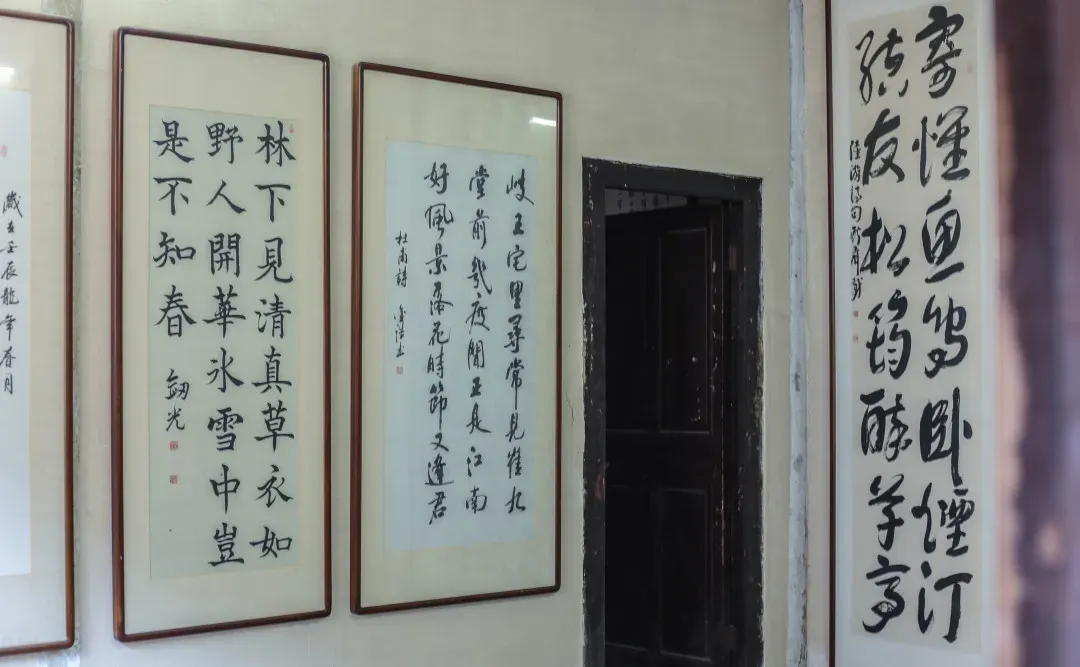 寄懷魚鳥卧煙汀
結友松筠醉草亭
陸游詩句
岐王宅里尋常見崔九
堂前幾度聞正是江南
好風景落花時節又逢君
杜甫詩
林下見清真草衣如
野人開華氷雪中豈
是不知春
劒光
歲在壬辰龍年春月